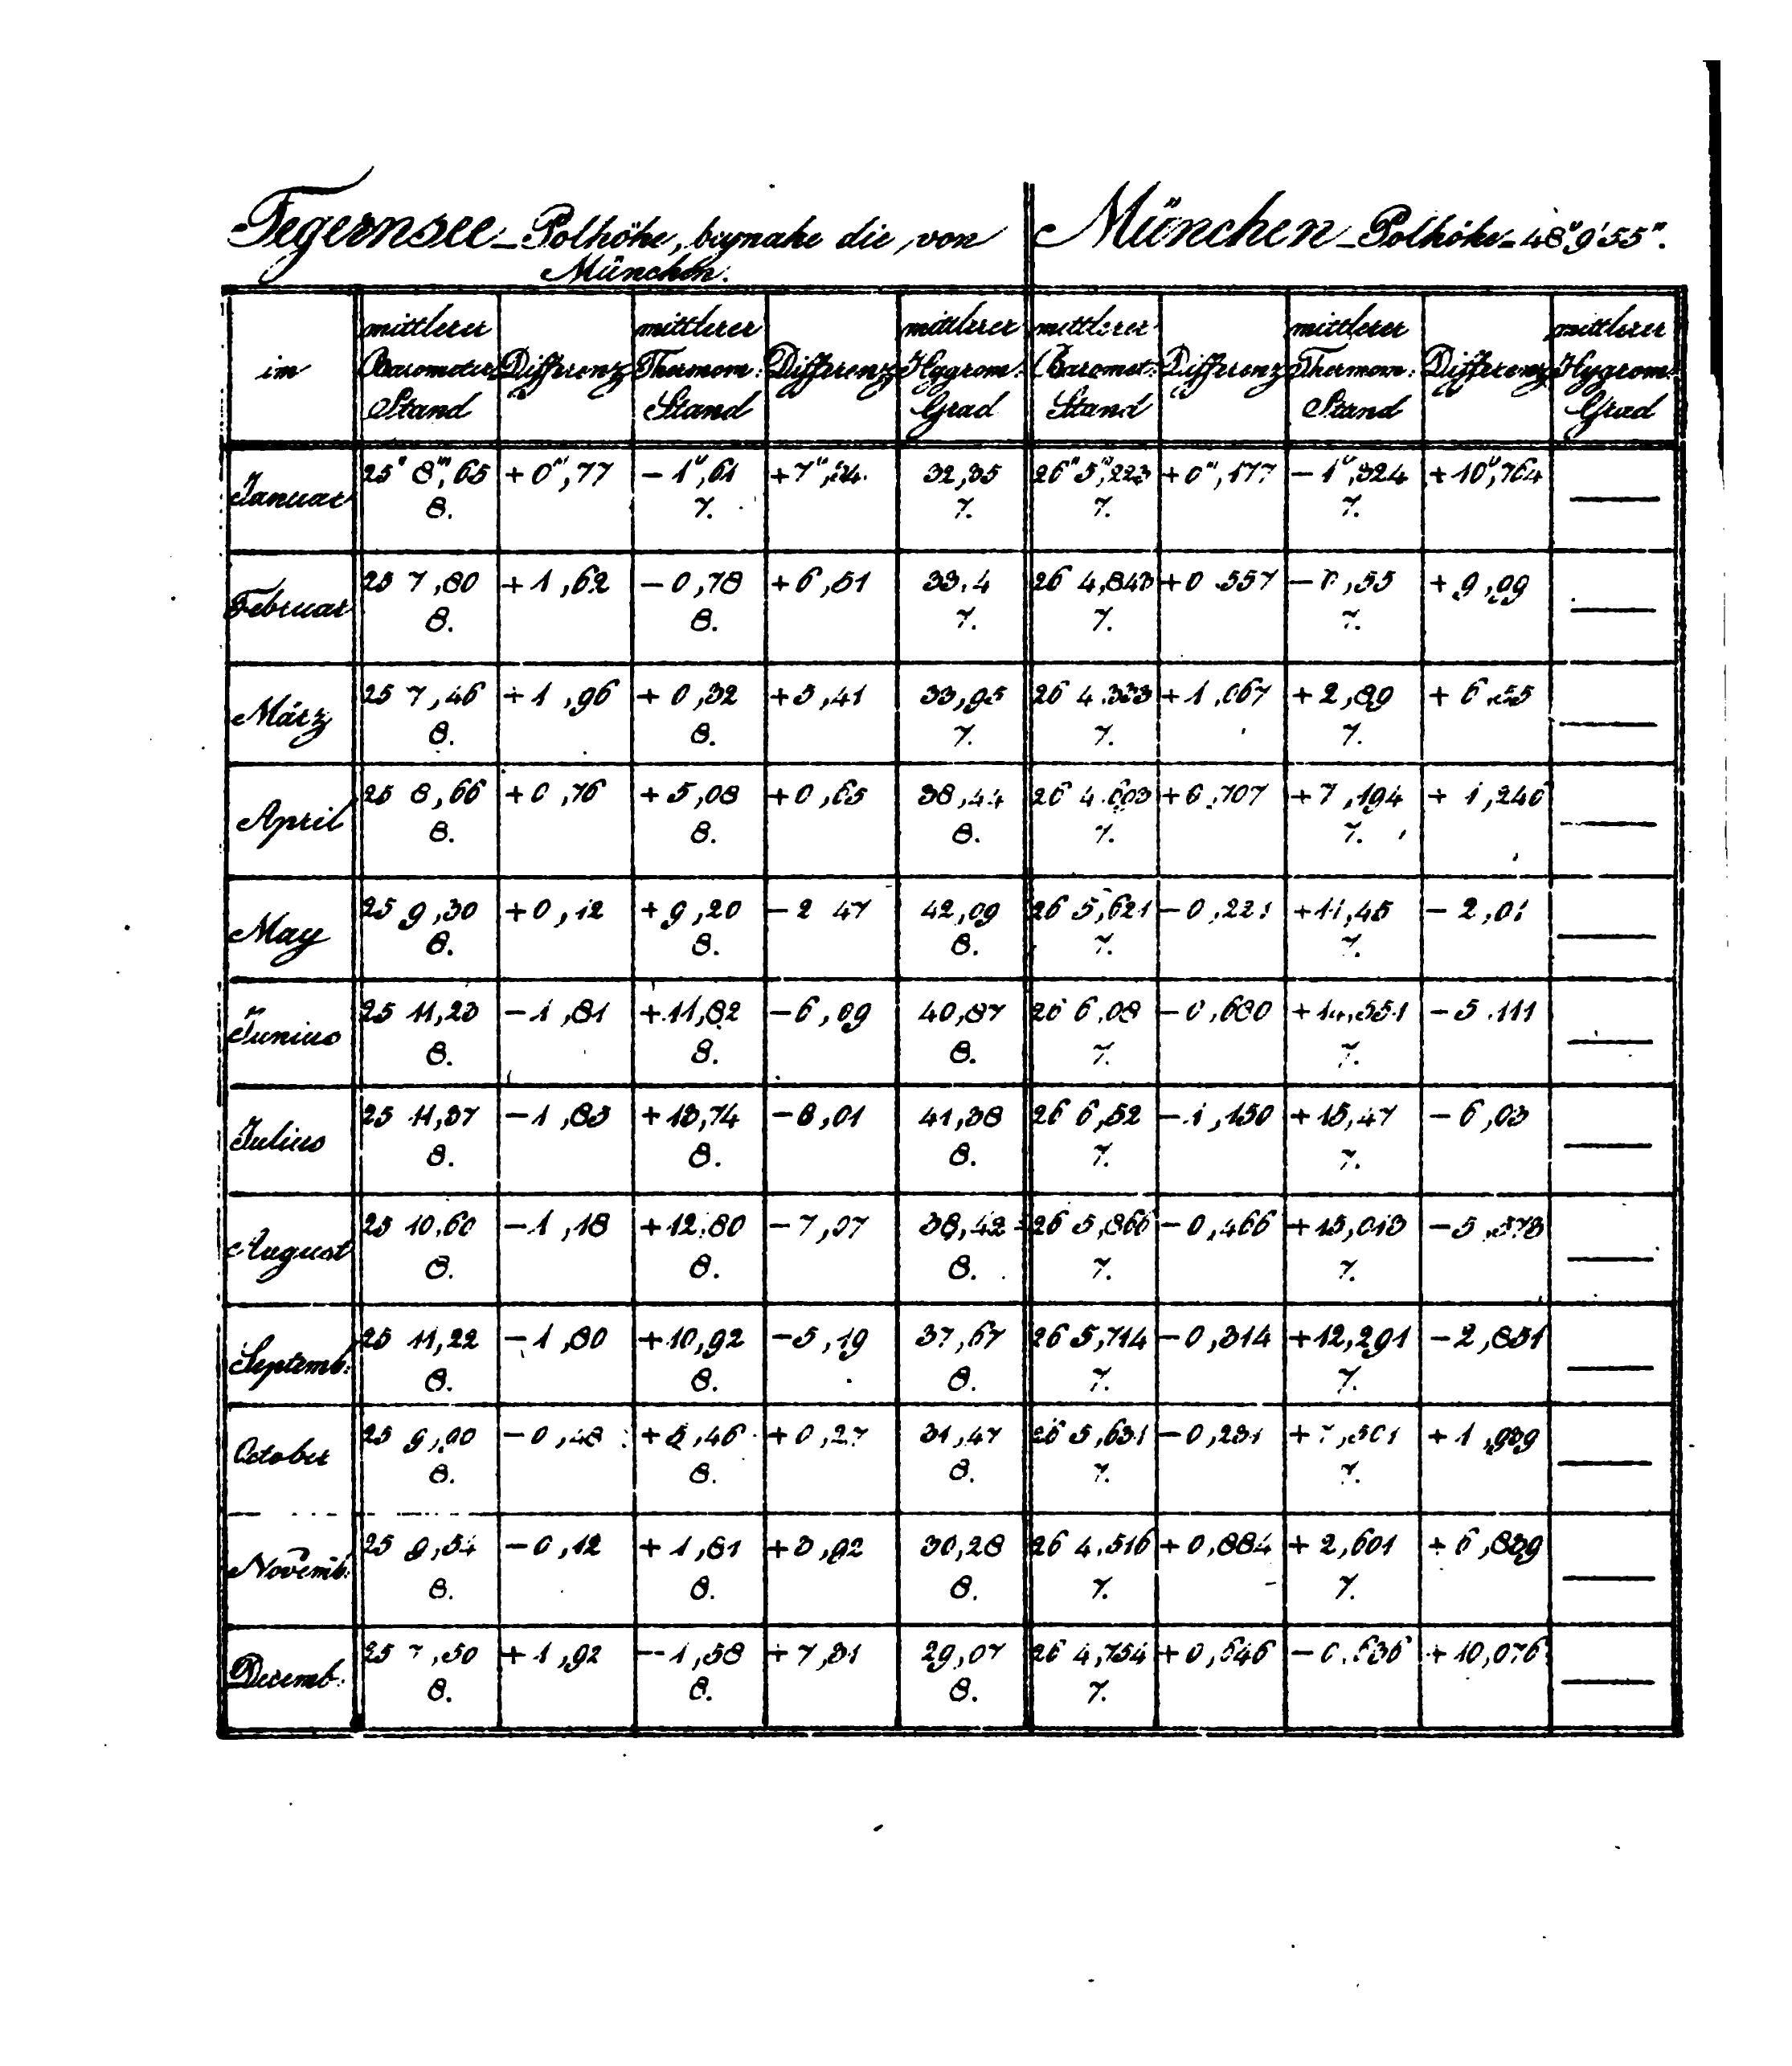 Tegernsee - Polhöhe, beynahe die von
München.
München - Polhöhe = 48° 9' 55".
im | mittlerer Barometer Stand | Differenz | mittlerer Thermom: Stand | Differenz | mittlerer Hygrom: Grad | mittlerer Baromet: Stand | Differenz | mittlerer Thermom: Stand | Differenz | mittlerer Hygrom: Grad
Januar | 25" 8"',65 | +0"',77 | -1°,61 | +7°,34 | 32,35 | 26" 5"',223 | +0"',177 | -1°,324 | +10°,764 | —
8. | 7. | 7. | 7. | 7.
Februar | 25 7,80 | +1,62 | -0,78 | +6,51 | 33,4 | 26 4,843 | +0 557 | -0,55 | +9,99 | —
8. | 8. | 7. | 7. | 7.
März | 25 7,46 | +1,96 | +0,32 | +5,41 | 33,95 | 26 4.333 | +1,067 | +2,89 | +6,55 | —
8. | 8. | 7. | 7. | 7.
April | 25 8,66 | +0,76 | +5,08 | +0,65 | 38,44 | 26 4.693 | +0,707 | +7,194 | +1,246 | —
8. | 8. | 8. | 7. | 7.
May | 25 9,30 | +0,12 | +9,20 | -2 47 | 42,09 | 26 5,621 | -0,221 | +11,45 | -2,01 | —
8. | 8. | 8. | 7. | 7.
Junius | 25 11,23 | -1,81 | +11,82 | -6,09 | 40,87 | 26 6,08 | -0,680 | +14,551 | -5.111 | —
8. | 8. | 8. | 7. | 7.
Julius | 25 11,37 | -1,83 | +13,74 | -8,01 | 41,38 | 26 6,52 | -1,150 | +15,47 | -6,03 | —
8. | 8. | 8. | 7. | 7.
August | 25 10,60 | -1,18 | +12,80 | -7,07 | 38,42 | 26 5,866 | -0,466 | +15,013 | -5,573 | —
8. | 8. | 8. | 7. | 7.
Septemb: | 25 11,22 | -1,80 | +10,92 | -5,19 | 37,67 | 26 5,714 | -0,314 | +12,291 | -2,851 | —
8. | 8. | 8. | 7. | 7.
October | 25 9,90 | -0,48 | +5,46 | +0,27 | 31,47 | 26 5,631 | -0,231 | +7,501 | +1,939 | —
8. | 8. | 8. | 7. | 7.
Novemb: | 25 9,54 | -0,12 | +1,81 | +3,92 | 30,28 | 26 4.516 | +0,884 | +2,601 | +6,839 | —
8. | 8. | 8. | 7. | 7.
Decemb: | 25 7,50 | +1,92 | -1,58 | +7,31 | 29,07 | 26 4,754 | +0,646 | -0.636 | +10,076 | —
8. | 8. | 8. | 7.